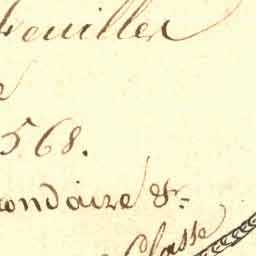 Feuilles
568.
condaire &c.
Classe